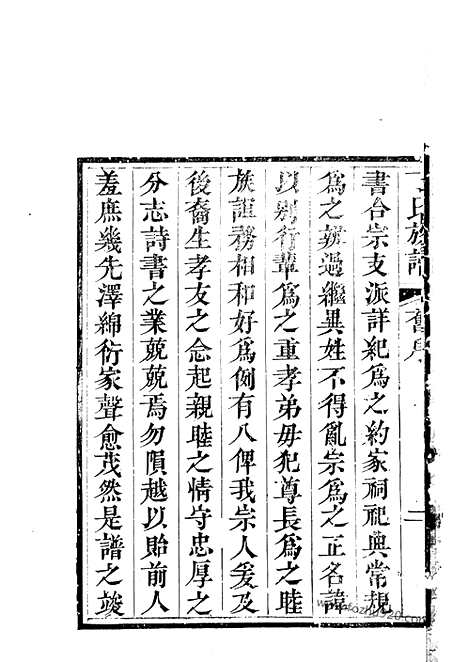 氏族譜
舊序
二
書合宗支派詳紀爲之約家祠祀典常規
爲之嚴過繼異姓不得亂宗爲之正名諱
以别行輩爲之重孝弟毋犯尊長爲之睦
族誼務相和好爲例有八俾我宗人爰及
後裔生孝友之念起親睦之情守忠厚之
分志詩書之業兢兢焉勿隕越以貽前人
羞庶幾先澤綿衍家聲愈茂然是譜之竣